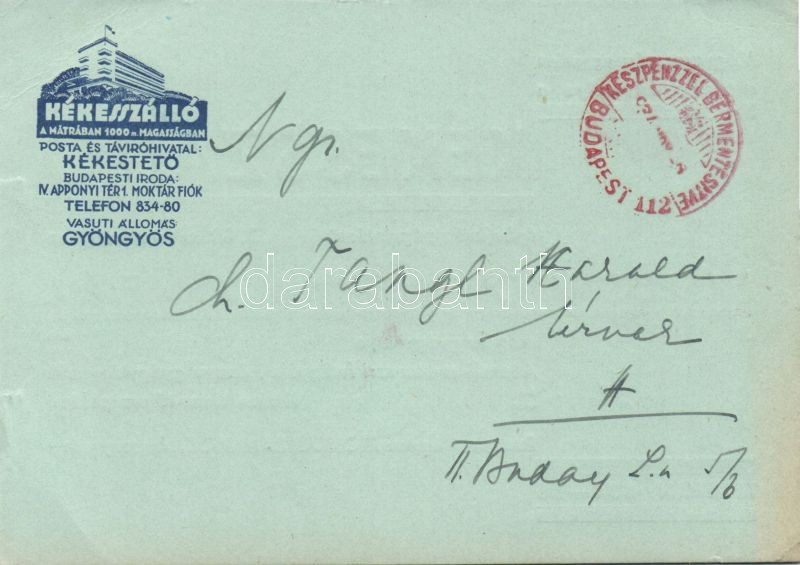 KÉKESSZÁLLÓ
A MÁTRÁBAN 1000 m. MAGASSÁGBAN
POSTA ÉS TÁVIRÓHIVATAL:
KÉKESTETŐ
BUDAPESTI IRODA:
IV. APPONYI TÉR 1. MOKTÁR FIÓK
TELEFON 834-80
VASUTI ÁLLOMÁS:
GYÖNGYÖS
KÉSZPÉNZZEL BÉRMENTESITVE
BUDAPEST 112
Ngs.
Dr. Tangl Harald
úrnak
II. Buday L. u 5/b
darabanth